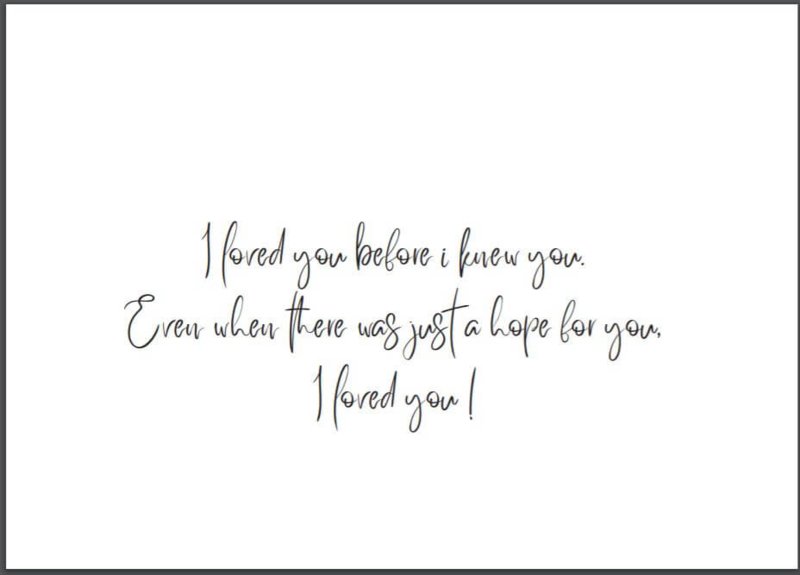 I loved you before i knew you.
Even when there was just a hope for you,
I loved you!